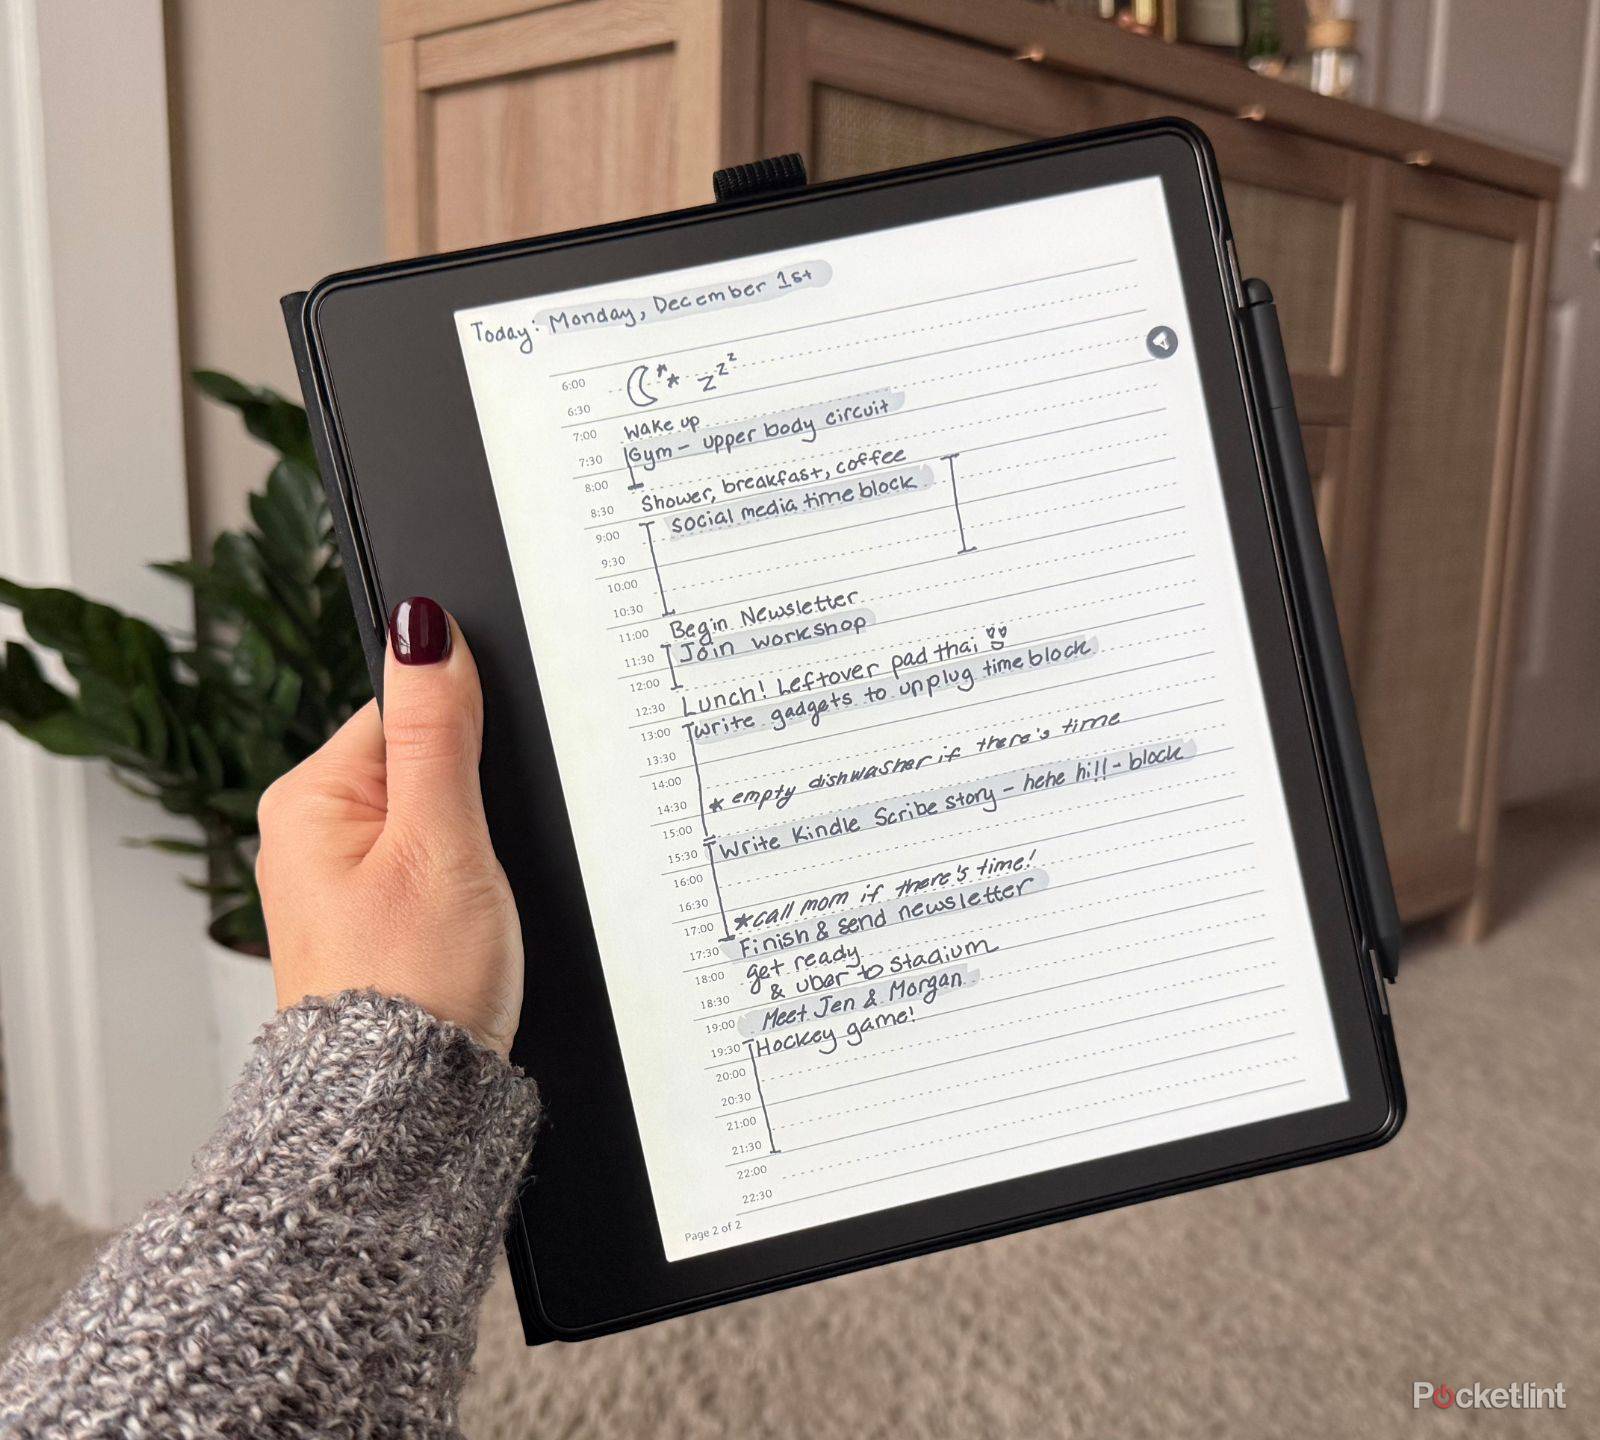 Today: Monday, December 1st
6:00
6:30 zzz
7:00 wake up
7:30 Gym - upper body circuit
8:00
8:30 Shower, breakfast, coffee
9:00 social media time block
9:30
10:00
10:30
11:00 Begin Newsletter
11:30 Join workshop
12:00
12:30 Lunch! Leftover pad thai
13:00 write gadgets to unplug time block
13:30
14:00
14:30 * empty dishwasher if there's time
15:00
15:30 Write Kindle Scribe story - hehe hi!! - block
16:00
16:30
17:00 *call mom if there's time!
17:30 Finish & send newsletter
18:00 get ready
18:30 & uber to stadium
19:00 Meet Jen & Morgan
19:30 Hockey game!
20:00
20:30
21:00
21:30
22:00
22:30
Page 2 of 2
Pocket-lint